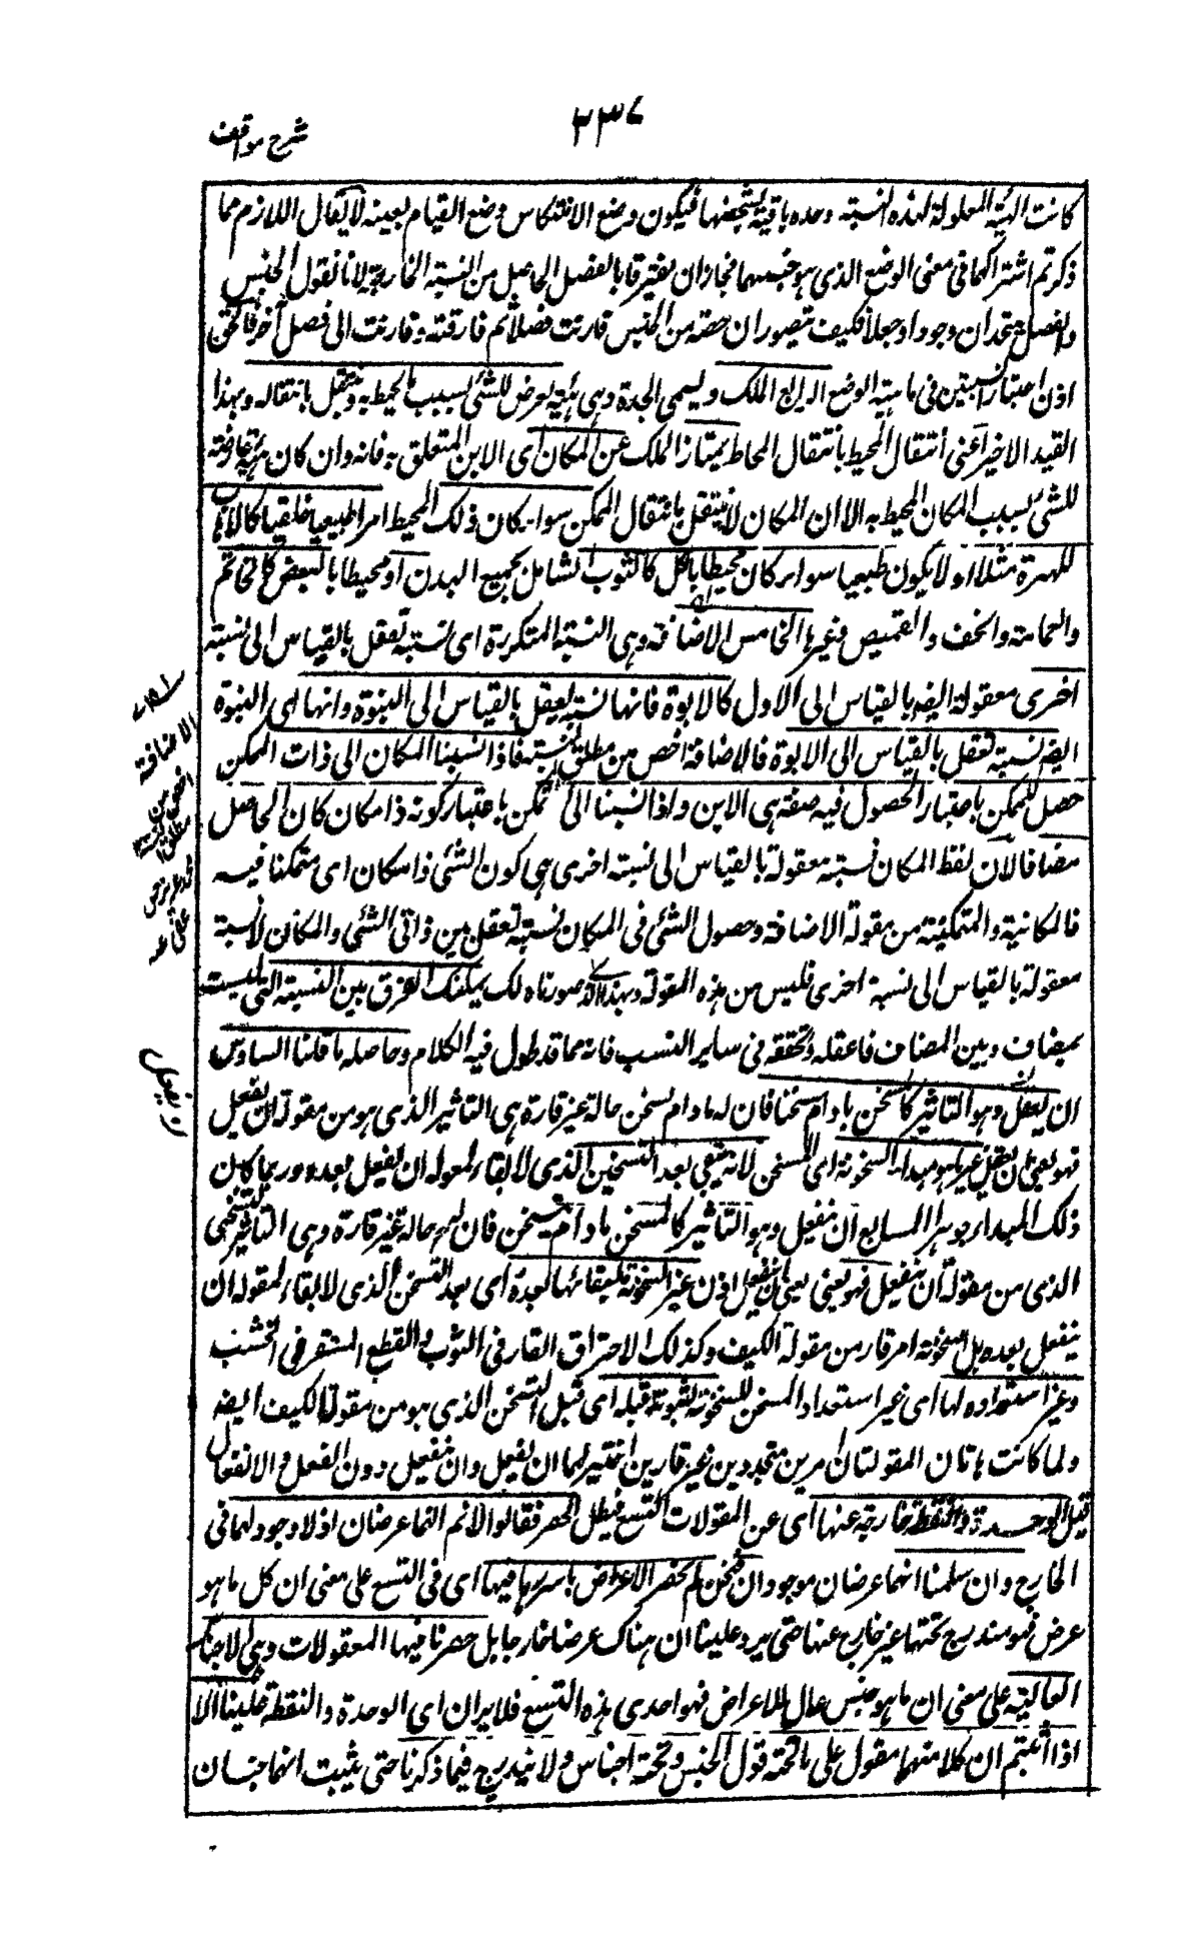 ۲۳۷
شرح مواقف
كانت الهيئة المعلولة لهذه النسبة وحده باقية بشخصها فيكون وضع الانتكاس وضع القيام بعينه لا يقال اللازم مما
ذكرتم اشتراكهما فى معنى الوضع الذى هو جنسهما فجاز ان يفترقا بالفصل الحاصل من النسبة الخارجية لانا نقول الجنس
والفصل متحدان وجودا وجعلا فكيف يتصور ان حصة من الجنس قارنت فصلا ثم فارقته وقارنت الى فصل آخر فالحق
اذن اعتبار النسبتين فى ماهية الوضع الرابع الملك ويسمى الجدة وهى هيئة تعرض للشئ بسبب ما يحيط به وينتقل بانتقاله وبهذا
القيد الاخير اعنى انتقال المحيط بانتقال المحاط يمتاز الملك عن المكان اى الاين المتعلق به فانه وان كان هيئة عارضة
للشئ بسبب المكان المحيط به الا ان المكان لا ينتقل بانتقال المتمكن سواء كان ذلك المحيط امرا طبيعيا خلقيا كالاهاب
للهرة مثلا او لا يكون طبيعيا سواء كان محيطا بالكل كالثوب الشامل لجميع البدن او محيطا بالبعض كالخاتم
والعمامة والخف والقميص وغيرها الخامس الاضافة وهى النسبة المتكررة اى نسبة تعقل بالقياس الى نسبة
اخرى معقولة ايضه بالقياس الى الاول كالابوة فانها نسبة تعقل بالقياس الى البنوة وانها اى البنوة
ايضه نسبة تعقل بالقياس الى الابوة فالاضافة اخص من مطلق النسبة فاذا نسبنا المكان الى ذات المتمكن
حصل للمتمكن باعتبار الحصول فيه صفة هى الاين واذا نسبنا الى المتمكن باعتبار كونه ذا مكان كان الحاصل
مضافا لان لفظ المكان نسبة معقولة بالقياس الى نسبة اخرى هى كون الشئ ذا مكان اى متمكنا فيه
فالمكانية والمتمكنية من مقولة الاضافة وحصول الشئ فى المكان نسبة تعقل بين ذاتى الشئ والمكان لا نسبة
معقولة بالقياس الى نسبة اخرى فليس من هذه المقولة وبهذا الذى صورناه لك يمكنك الفرق بين النسبة التى ليست
بمضاف وبين المضاف فاعقله وتحققه فى ساير النسب فانه مما قد طول فيه الكلام وحاصله ما قلنا السادس
ان يفعل وهو التاثير كالمسخن ما دام مسخنا فان له ما دام يسخن حالة غير قارة هى التاثير الذى هو من مقولة ان يفعل
فهو يعنى ان يفعل غير ما هو مبدأ السخونة اى المسخن لانه يبقى بعد التسخين الذى لا بقاء لمقولة ان يفعل بعده وربما كان
ذلك المبداء جوهرا السابع ان ينفعل وهو التاثر كالمتسخن ما دام يتسخن فان له حالة غير قارة وهى التاثر التسخنى
الذى من مقولة ان ينفعل فهو يعنى ان ينفعل اذن غير السخونة لبقائها بعده اى بعد التسخن الذى لا بقاء لمقولة ان
ينفعل بعده بل السخونة امر قار من مقولة الكيف وكذلك الاحتراق القار فى الثوب والقطع المستقر فى الخشب
وغير استعداده لها اى غير استعداد المسخن للسخونة لثبوته قبله اى قبل التسخن الذى هو من مقولة الكيف ايضه
ولما كانت هاتان المقولتان امرين متجددين غير قارين اختير لهما ان يفعل وان ينفعل دون الفعل والانفعال
قيل الوحدة والنقطة خارجة عنها اى عن المقولات التسع فبطل الحصر فقالوا لا نم انهما عرضان اذ لا وجود لهما فى
الخارج وان سلمنا انهما عرضان موجودان فنحن لم نحصر الاعراض باسرها فيها اى فى التسع على معنى ان كل ما هو
عرض فهو مندرج تحتها غير خارج عنها حتى يرد علينا ان هناك عرضا خارجا بل حصرنا فيها المعقولات وهى الاجناس
العالية على معنى ان ما هو جنس عال للاعراض فهو احدى هذه التسع فلا يردان اى الوحدة والنقطة علينا الا
اذا اثبتم ان كلا منهما مقول على ما تحته قول الجنس وتحته اجناس ولا يندرج فيما ذكرنا حتى يثبت انهما جنسان
الاضافة
اخص من
مطلق النسبة
ان يفعل